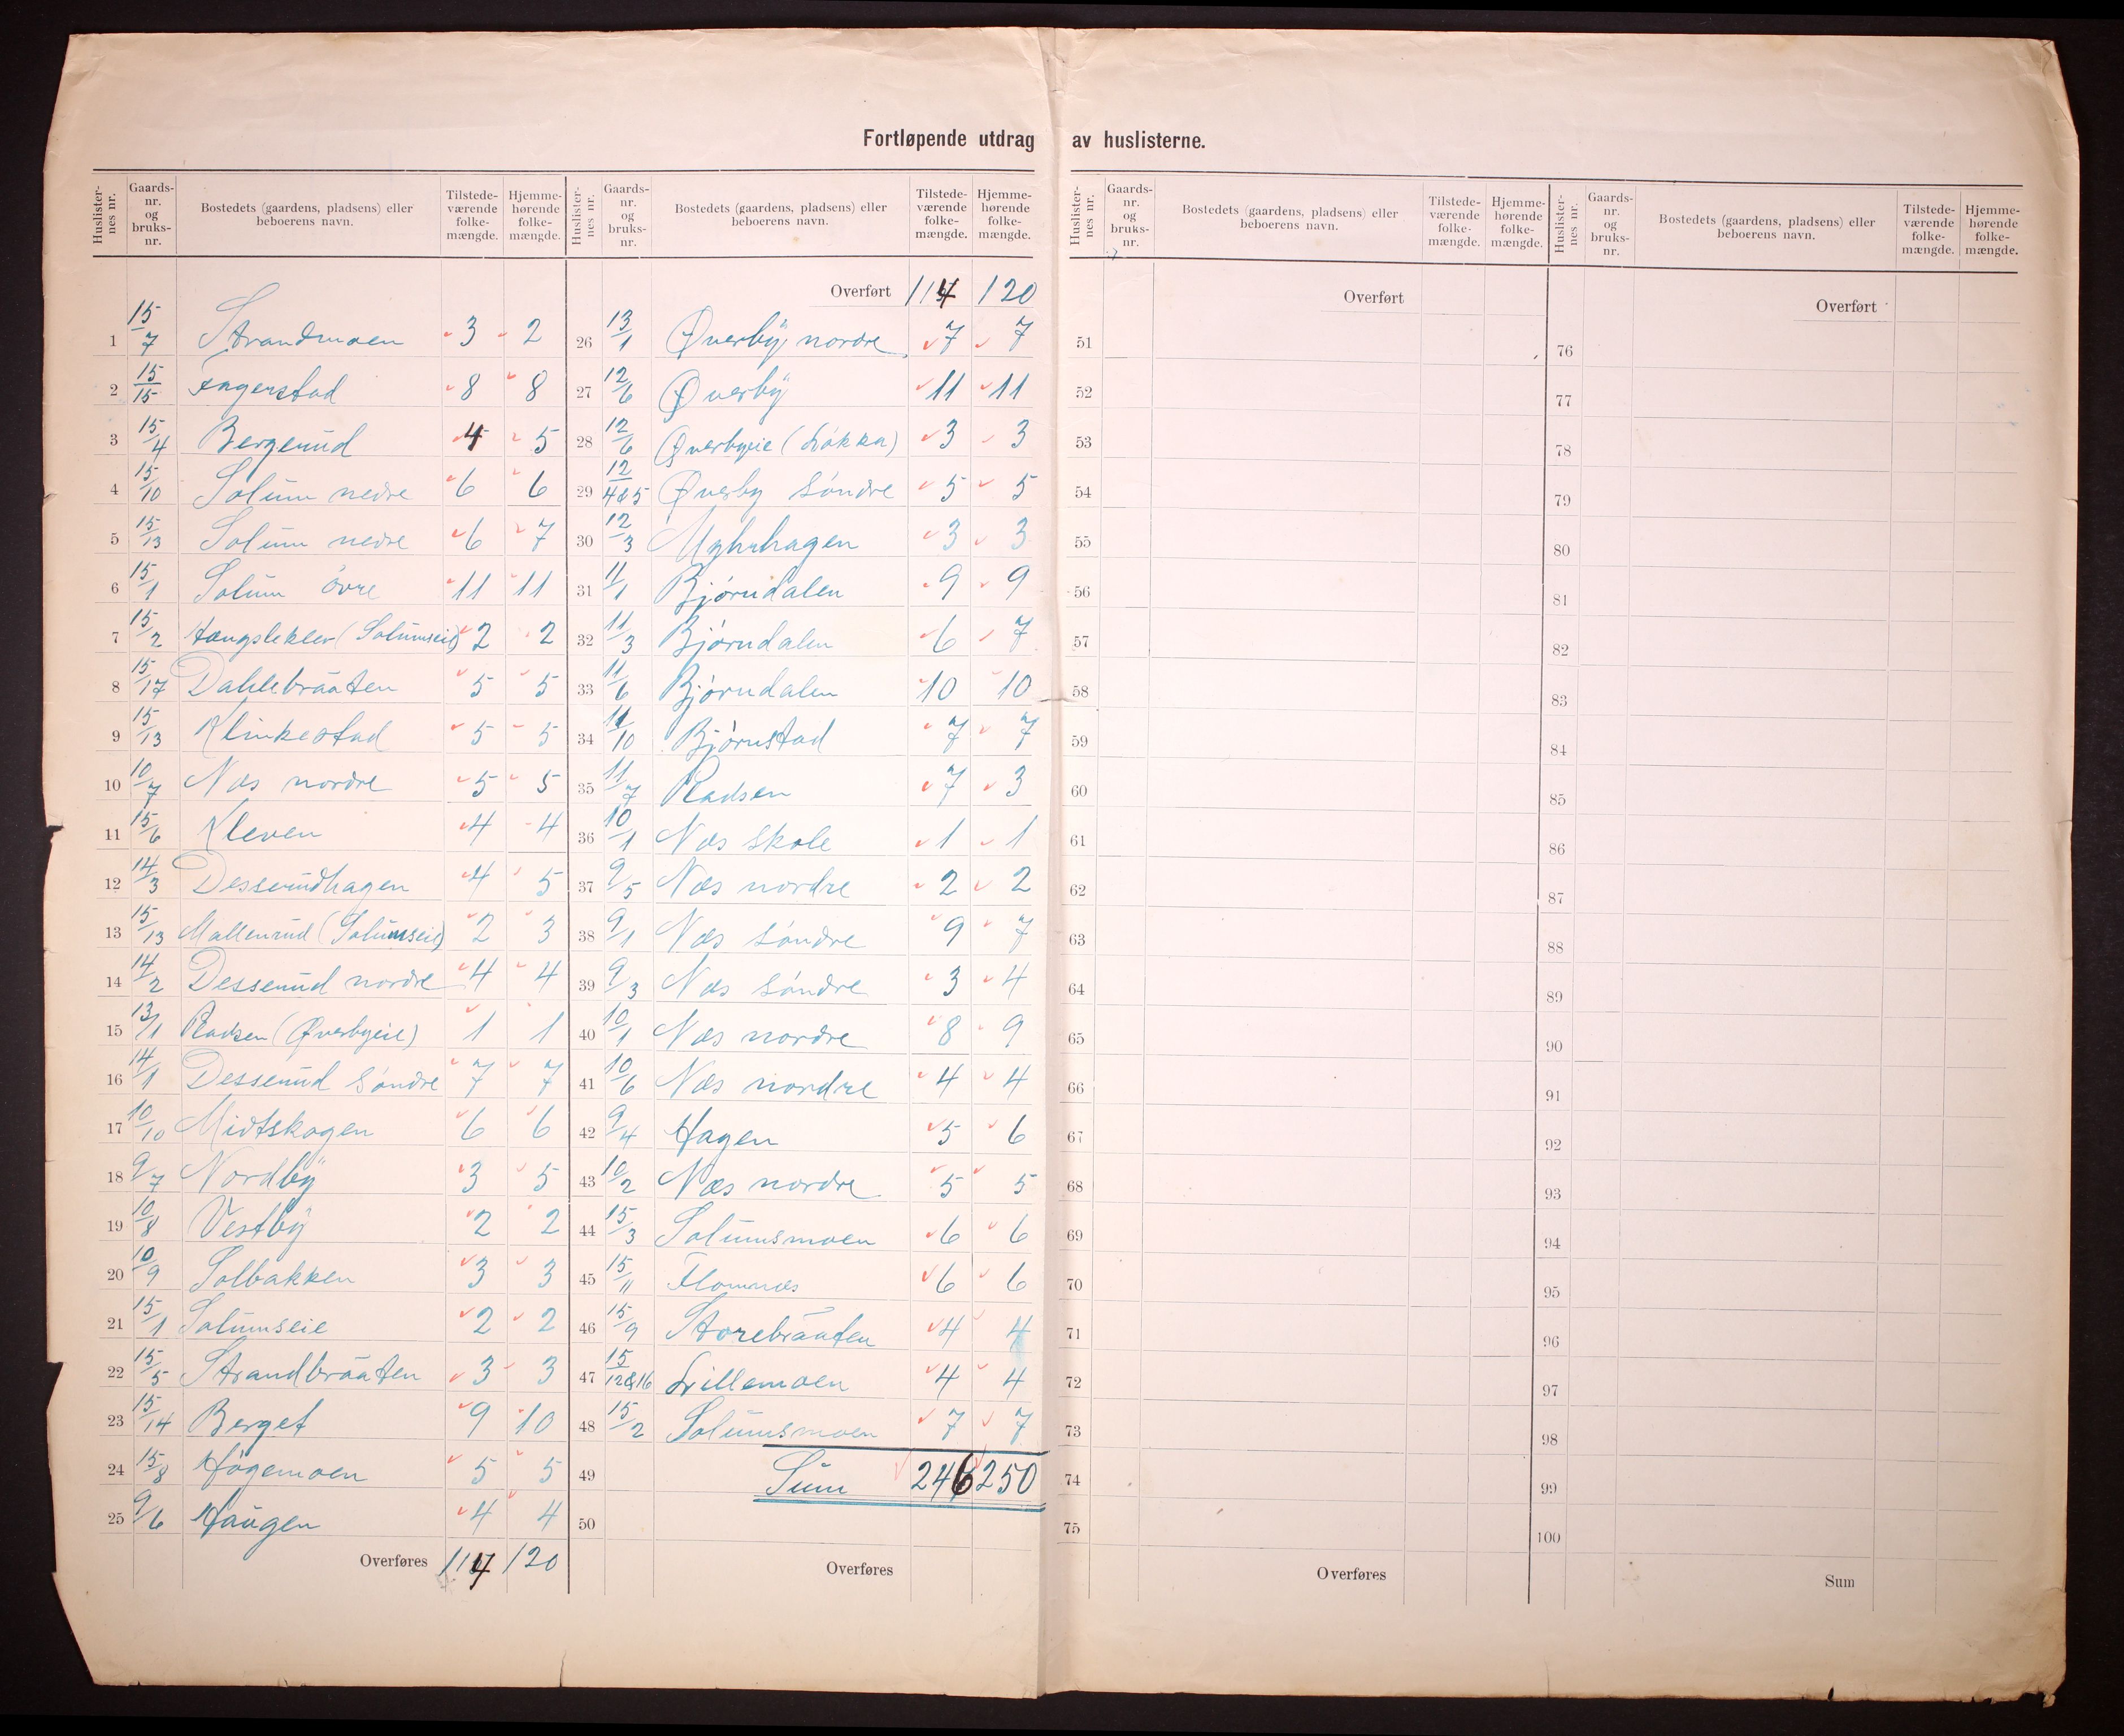 Fortløpende utdrag av huslisterne.
Huslisternes nr. Gaards-nr. og bruks-nr. Bostedets (gaardens, pladsens) eller beboerens navn. Tilstedeværende folkemængde. Hjemmehørende folkemængde.
1 15/7 Strandmoen 3 2
2 15/15 Fagerstad 8 8
3 15/4 Bergerud 4 5
4 15/10 Solum nedre 6 6
5 15/13 Solum nedre 6 7
6 15/1 Solum övre 11 11
7 15/2 (Solumseie) 2 2
8 15/17 Dahlebraaten 5 5
9 15/13 Klinkestad 5 5
10 10/7 Næs nordre 5 5
11 15/6 Kleven 4 4
12 14/3 Desserudhagen 4 5
13 15/13 Mallerud (Solumseie) 2 3
14 14/2 Desserud nordre 4 4
15 13/1 Pladsen (Øverbyeie) 1 1
16 14/1 Desserud söndre 7 7
17 10/10 Midtskogen 6 6
18 9/7 Nordby 3 5
19 10/8 Vestby 2 2
20 10/9 Solbakken 3 3
21 15/1 Solumseie 2 2
22 15/5 Strandbraaten 3 3
23 15/14 Berget 9 10
24 15/8 Högemoen 5 5
25 9/6 Haugen 4 4
Overføres 114 120
Huslisternes nr. Gaards-nr. og bruks-nr. Bostedets (gaardens, pladsens) eller beboerens navn. Tilstedeværende folkemængde. Hjemmehørende folkemængde.
Overført 114 120
26 13/1 Øverby nordre 7 7
27 12/6 Øverby 11 11
28 12/6 Øverbyeie (Lökka) 3 3
29 12/4&5 Øverby söndre 5 5
30 12/3 Myhrhagen 3 3
31 11/1 Bjørndalen 9 9
32 11/3 Bjørndalen 6 7
33 11/6 Bjørndalen 10 10
34 11/10 Bjørnstad 7 7
35 11/7 Pladsen 7 3
36 10/1 Næs skole 1 1
37 9/5 Næs nordre 2 2
38 9/1 Næs söndre 9 7
39 9/3 Næs söndre 3 4
40 10/1 Næs nordre 8 9
41 10/6 Næs nordre 4 4
42 9/4 Hagen 5 6
43 10/2 Næs nordre 5 5
44 15/3 Solumsmoen 6 6
45 15/11 Flomnæs 6 6
46 15/9 Storebraaten 4 4
47 15/12&16 Lillemoen 4 4
48 15/2 Solumsmoen 7 7
49 Sum 246 250
50
Overføres
Huslisternes nr. Gaards-nr. og bruks-nr. Bostedets (gaardens, pladsens) eller beboerens navn. Tilstedeværende folkemængde. Hjemmehørende folkemængde.
Overført
51
52
53
54
55
56
57
58
59
60
61
62
63
64
65
66
67
68
69
70
71
72
73
74
75
Overføres
Huslisternes nr. Gaards-nr. og bruks-nr. Bostedets (gaardens, pladsens) eller beboerens navn. Tilstedeværende folkemængde. Hjemmehørende folkemængde.
Overført
76
77
78
79
80
81
82
83
84
85
86
87
88
89
90
91
92
93
94
95
96
97
98
99
100
Sum